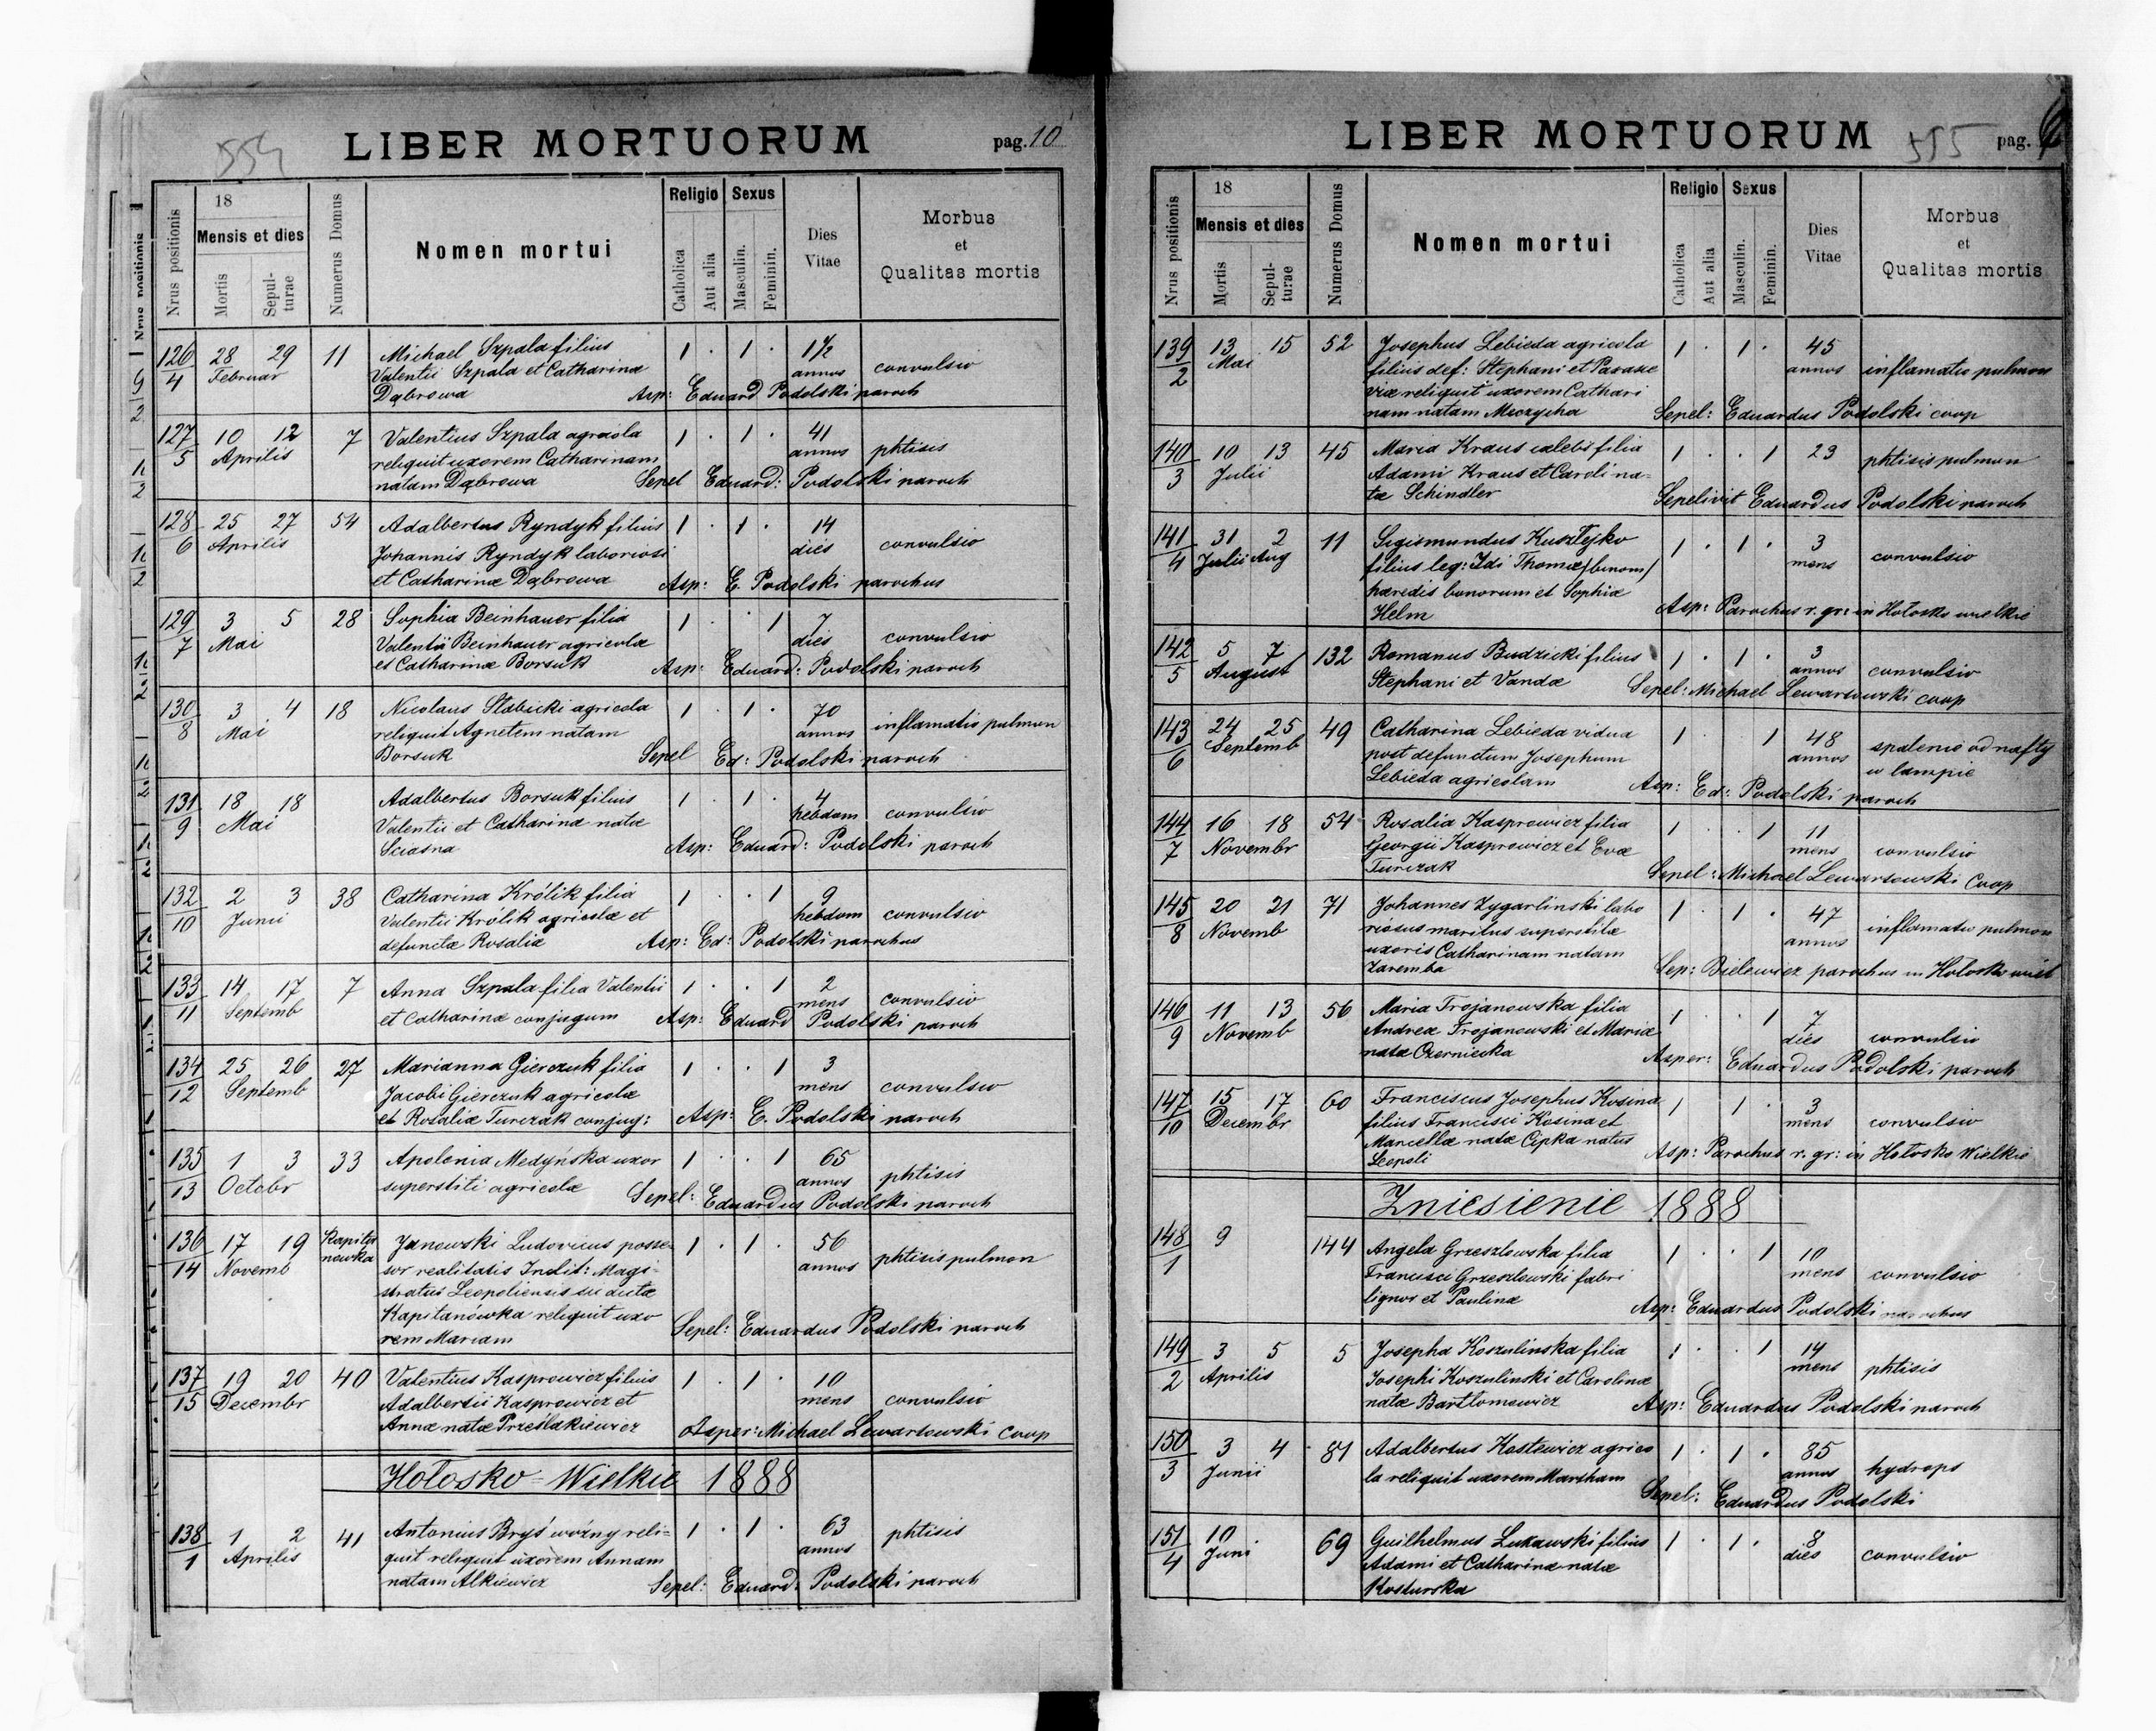 554
LIBER MORTUORUM pag. 10
Nrus positionis
18
Mensis et dies
Mortis
Sepul-
turae
Numerus Domus
Nomen mortui
Religio
Catholica
Aut alia
Sexus
Masculin.
Feminin.
Dies
Vitae
Morbus
et
Qualitas mortis
126/4 28 29 Februar 11 Michael Szpala filius 1 . 1 . 1½ annos convulsio
Valentii Szpala et Catharina
Dąbrowa Asp: Eduard Podolski paroch
127/5 10 12 Aprilis 7 Valentius Szpala agricola 1 . 1 . 41 annos phtisis
reliquit uxorem Catharinam
natam Dąbrowa Sepel Eduard: Podolski paroch
128/6 25 27 Aprilis 54 Adalbertus Ryndyk filius 1 . 1 . 14 dies convulsio
Johannis Ryndyk laboriosi
et Catharinæ Dąbrowa Asp: E. Podolski parochus
129/7 3 5 Mai 28 Sophia Beinhauer filia 1 . . 1 7 dies convulsio
Valentii Beinhauer agricolæ
et Catharinæ Borsuk Asp: Eduard: Podolski paroch
130/8 3 4 Mai 18 Nicolaus Słabicki agricola 1 . 1 . 70 annos inflamatio pulmon
reliquit Agnetem natam
Borsuk Sepel Ed: Podolski paroch
131/9 18 18 Mai Adalbertus Borsuk filius 1 . 1 . 4 hebdom convulsio
Valentii et Catharinæ natæ
Sciasna Asp: Eduard: Podolski paroch
132/10 2 3 Junii 38 Catharina Królik filia 1 . . 1 9 hebdom convulsio
Valentii Królik agricolæ et
defunctæ Rosaliæ Asp: Ed: Podolski parochus
133/11 14 17 Septemb 7 Anna Szpala filia Valentii 1 . . 1 2 mens convulsio
et Catharinæ conjugum Asp: Eduard Podolski paroch
134/12 25 26 Septemb 27 Marianna Gierczuk filia 1 . . 1 3 mens convulsio
Jacobi Gierczuk agricolæ
et Rosaliæ Turczak conjug: Asp: E. Podolski paroch
135/13 1 3 Octobr 33 Apolonia Medyńska uxor 1 . . 1 65 annos phtisis
superstiti agricolæ Sepel: Eduardus Podolski paroch
136/14 17 19 Novemb Kapita nowka Janowski Ludovicus posse- 1 . 1 . 56 annos phtisis pulmon
sor realitatis Indit: Magi-
stratus Leopoliensis sic dictæ
Kapitanówka reliquit uxo
rem Mariam Sepel: Eduardus Podolski paroch
137/15 19 20 Decembr 40 Valentius Kasprowicz filius 1 . 1 . 10 mens convulsio
Adalbertii Kasprowicz et
Annæ natæ Prześlakiewicz Asper: Michael Lewartowski coop
Hołosko = Wielkie 1888
138/1 1 2 Aprilis 41 Antonius Bryś woźny reli= 1 . 1 . 63 annos phtisis
quit reliquit uxorem Annam
natam Alkiewicz Sepel: Eduard: Podolski paroch
555
LIBER MORTUORUM pag.
Nrus positionis
18
Mensis et dies
Mortis
Sepul-
turae
Numerus Domus
Nomen mortui
Religio
Catholica
Aut alia
Sexus
Masculin.
Feminin.
Dies
Vitae
Morbus
et
Qualitas mortis
139/2 13 15 Mai 52 Josephus Lebieda agricola 1 . 1 . 45 annos inflamatio pulmon
filius def: Stephani et Paraxe
viæ reliquit uxorem Cathari
nam natam Meczycha Sepel: Eduardus Podolski coop
140/3 10 13 Julii 45 Maria Kraus cælebs filia 1 . . 1 23 phtisis pulmon
Adami Kraus et Caroli na-
tæ Schindler Sepelivit Eduardus Podolski paroch
141/4 31 Julii 2 Aug 11 Sigismundus Kusztejko 1 . 1 . 3 mens convulsio
filius leg: Idi Thomæ /binom/
hæredis bonorum et Sophiæ
Helm Asp: Parochus r. gr: in Hołosko wielkie
142/5 5 7 August 132 Romanus Budzicki filius 1 . 1 . 3 annos convulsio
Stephani et Vandæ Sepel: Michael Lewartowski coop
143/6 24 25 Septemb 49 Catharina Lebieda vidua 1 . . 1 48 annos spalenie od nafty
post defunctum Josephum w lampie
Lebieda agricolam Asp: Ed: Podolski paroch
144/7 16 18 Novembr 54 Rosalia Kasprowicz filia 1 . . 1 11 mens convulsio
Georgii Kasprowicz et Evæ
Turczak Sepel: Michael Lewartowski Coop
145/8 20 21 Novemb 71 Johannes Zygarlinski labo 1 . 1 . 47 annos inflamatio pulmon
riosus maritus superstitæ
uxoris Catharinam natam
Zaremba Sep: Bielewicz parochus in Hołosko wiel
146/9 11 13 Novemb 56 Maria Trojanowska filia 1 . . 1 7 dies convulsio
Andreæ Trojanowski et Mariæ
natæ Czerniecka Asper: Eduardus Podolski paroch
147/10 15 17 Decembr 60 Franciscus Josephus Kosina 1 1 . 3 mens convulsio
filius Francisci Kosina et
Marcellæ natæ Cipka natus
Leopoli Asp: Parochus r. gr: in Hołosko Wielkie
Zniesienie 1888
148/1 9 144 Angela Grzeszlowska filia 1 . . 1 10 mens convulsio
Francisci Grzeszlowski fabri
lignor et Paulinæ Asp: Eduardus Podolski parochus
149/2 3 5 Aprilis 5 Josepha Koszulinska filia 1 . . 1 14 mens phtisis
Josephi Koszulinski et Carolinæ
natæ Bartłomowicz Asp: Eduardus Podolski paroch
150/3 3 4 Junii 81 Adalbertus Kostewicz agrico 1 . 1 . 85 annos hydrops
la reliquit uxorem Martham
Sepel: Eduardus Podolski
151/4 10 Juni 69 Guilhelmus Lukawski filius 1 . 1 . 8 dies convulsio
Adami et Catharinæ natæ
Kosturska